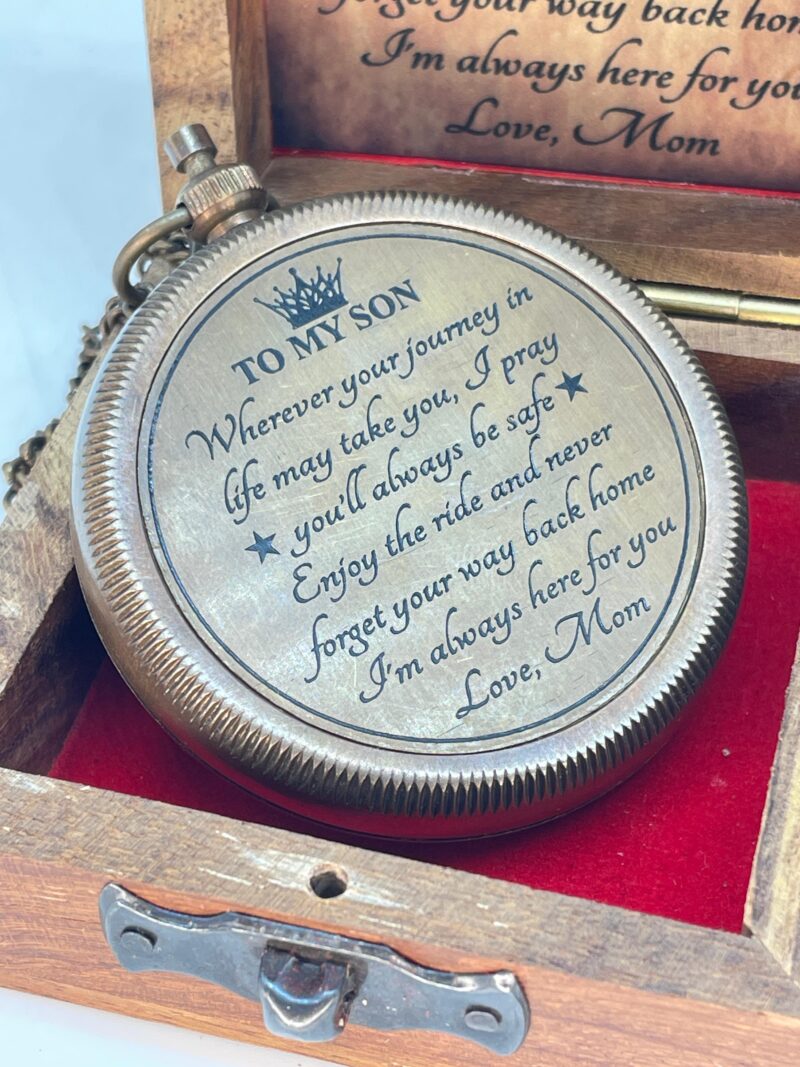 forget your way back hom
I'm always here for you
Love, Mom
TO MY SON
Wherever your journey in
life may take you, I pray
you'll always be safe
Enjoy the ride and never
forget your way back home
I'm always here for you
Love, Mom